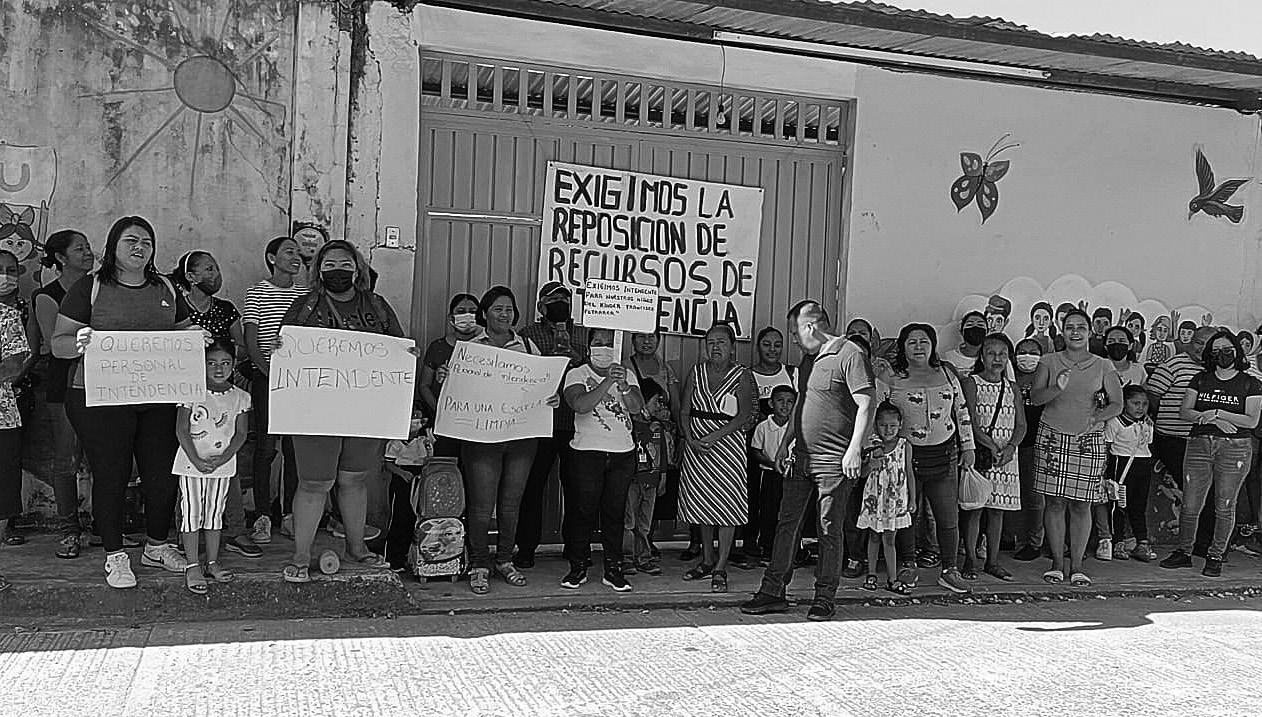 U
EXIGIMOS LA
REPOSICION DE
RECURSOS DE
ENCIA
EXIGIMOS INTENDENTE
PARA NUESTROS NIÑOS
DEL KINDER FRANCISCO
PETRARCA"
QUEREMOS
PERSONAL
DE
INTENDENCIA
QUEREMOS
INTENDENTE
Necesitamos
Personal de intendencia
PARA UNA ESCUELA
LIMPIA
HILFIGER